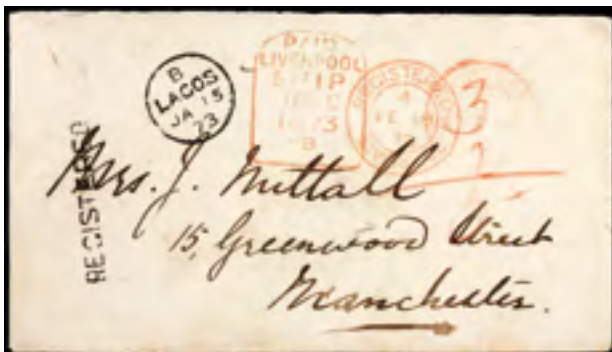 B
LAGOS
JA 15
73
PAID
LIVERPOOL
SHIP
B
REGISTERED
REGISTERED
3
Mrs. J. Nuttall
15, Greenwood Street
Manchester.